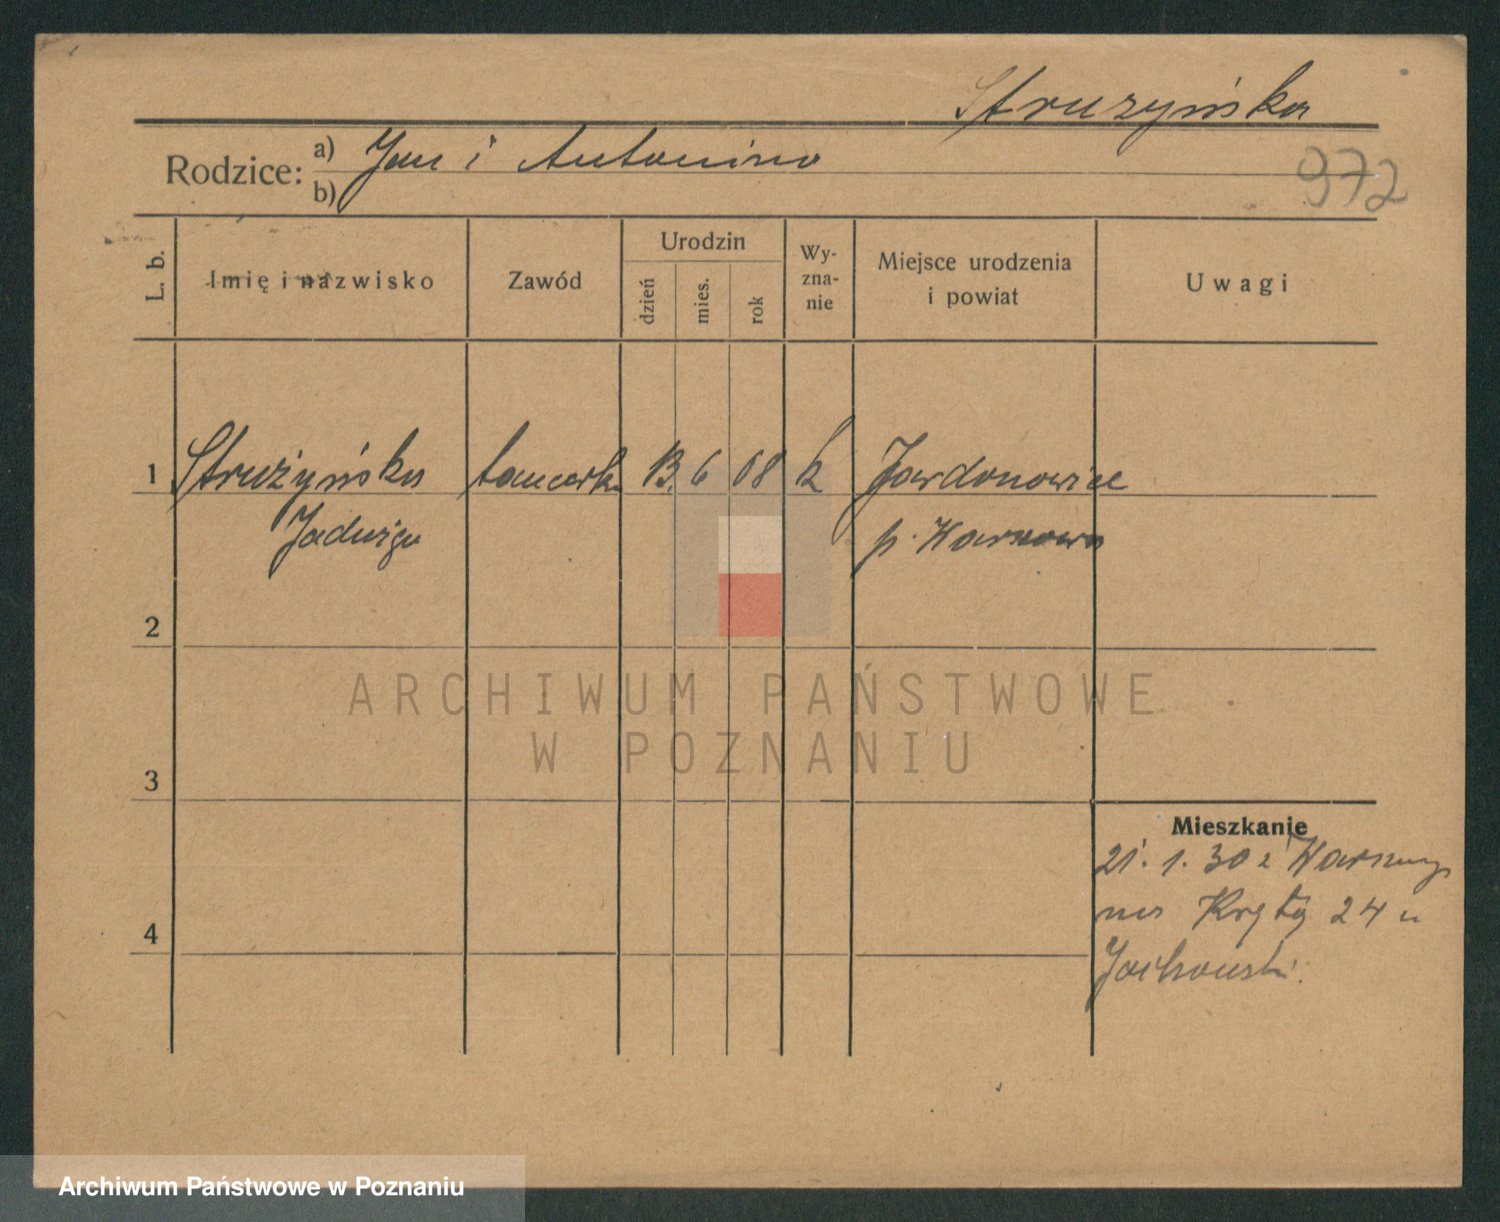 Strużyńska
Rodzice: a) Jan i Antonina
b)
972
L. b.
Imię i nazwisko
Zawód
Urodzin
dzień
mies.
rok
Wy-
zna-
nie
Miejsce urodzenia
i powiat
Uwagi
1 Strużyńska tancerka 13. 6 08 k
Jadwiga p. Warszawa
2
3
4
Mieszkanie
21. 1. 30 z Warszawy
na Krętą 24 u
ARCHIWUM PAŃSTWOWE
W POZNANIU
Archiwum Państwowe w Poznaniu